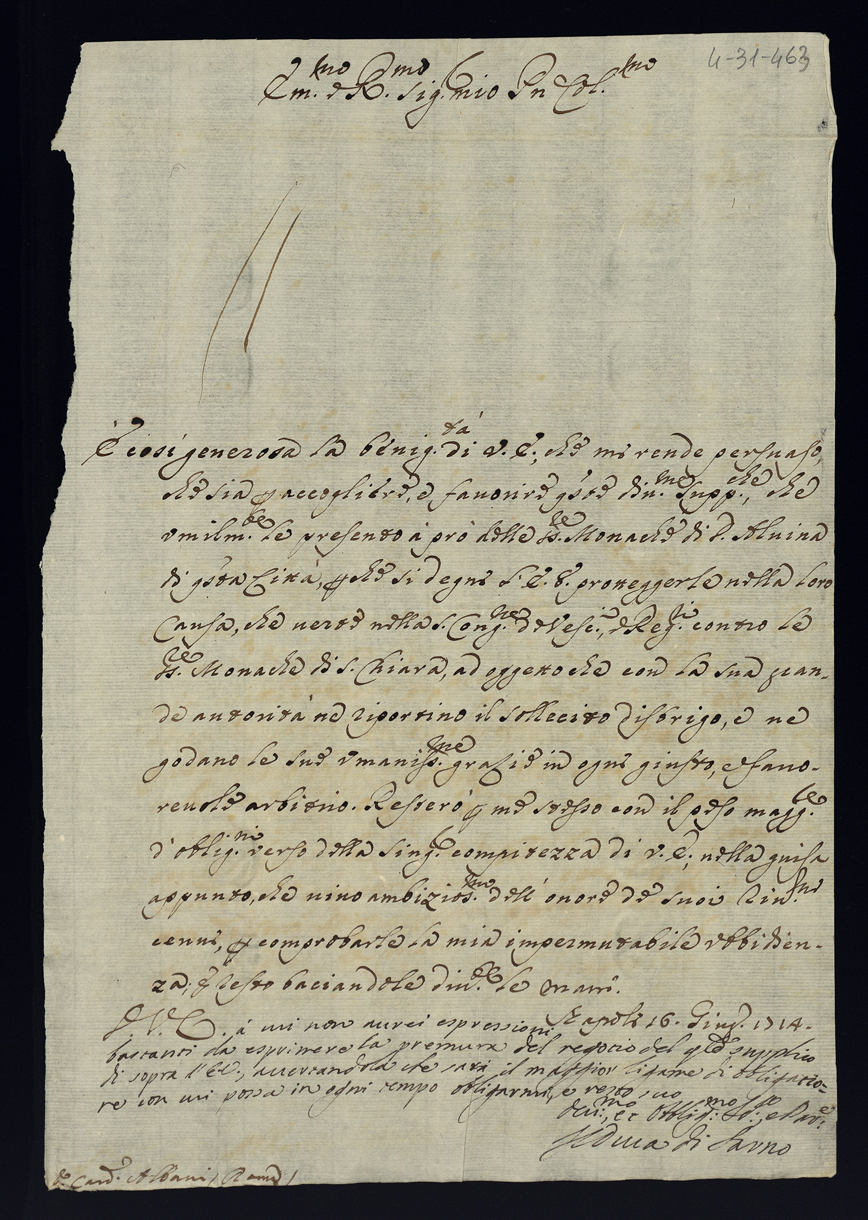 4-31-463
Em.mo e R.mo Sig. mio Pn Col.mo
È così generosa la benig.tà di V. E., che mi rende persuaso,
che sia p accogliere, e favorire q̃ste div.me supp.che, che
umilm.te le presento à prò delle RR. Monache di D. Alvina
di q̃sta Città, p che si degni l'E. V. proteggerle nella loro
Causa, che verte nella S. Cong.ne de Vesc.i, e Reg.ri contro le
RR. Monache di S. Chiara, ad oggetto che con la sua gran-
de autorità ne riportino il sollecito disbrigo, e ne
godano le sue umaniss.me grazie in ogni giusto, e favo-
revole arbitrio. Resterò p me stesso con il peso magg.re
d'oblig.ni verso della sing.r compitezza di V. E., nella guisa
appunto, che vivo ambizios.mo dell'onore de suoi riv.mi
cenni, p comprobarle la mia impermutabile ubbidien-
za; e resto baciandole div.te le mani.
Napoli 16. Giug. 1714.
à mi non aurei espressioni
bastanti da esprimere la premura del negocio del q̃le supplico
di sopra l'E. V., accertandola che sarà il maggior ligame di obligatio-
ne con mi possa in ogni tempo obligarmi, e resto
suo
dev.mo, et Obblig.mo Se., e Par.e
Il Duca di Sarno
S.r Card.e Albani (Roma)